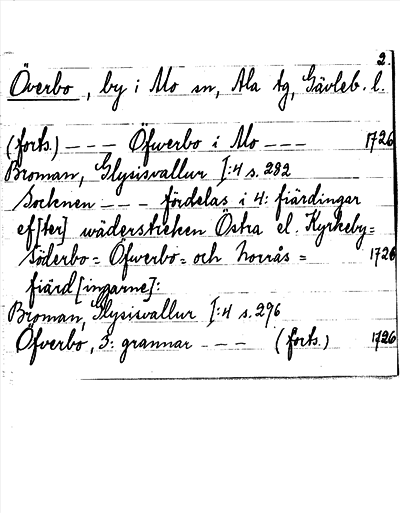 2.
Överbo, by i Mo sn, Ala tg, Gävleb. l.
(forts.) – – – Öfwerbo i Mo – – – 1726
Broman, Glysisvallur I:4 s. 282
Socknen – – – fördelas i 4: fiärdingar
ef[ter] wäderstreken Östra el. Kyrkeby=
Söderbo= Öfwerbo= och Norrås = 1726
fiärd[ingarne]:
Broman, Glysisvallur I:4 s. 296
Öfwerbo, 3: grannar – – – (forts.) 1726